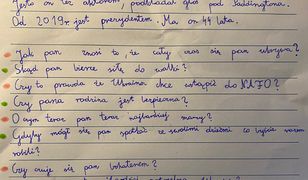 Jesto on też aktorem podkładał głos pod Paddingtona.
Od 2019r jest prezydentem. Ma on 44 lata.
Jak pan znosi to, że cały czas się pan ukrywa?
Skąd pan bierze siłę do walki?
Czy to prawda że Ukraina chce wstąpić do NATO?
Czy pana rodzina jest bezpieczna?
O czym teraz pan teraz najbardziej marzy?
Gdyby mógł się pan spotkać ze swoimi dziećmi co byście razem
robili?
Czy czuje się pan bohaterem?